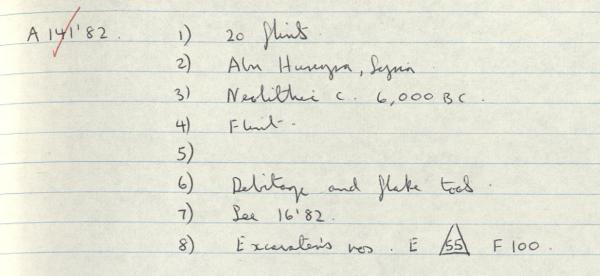 A 141'82. 1) 20 flints.
2) Abu Hureyra, Syria
3) Neolithic c. 6,000 BC.
4) Flint.
5)
6) Debitage and flake tools.
7) See 16'82.
8) Excavator's nos. E 55 F 100.